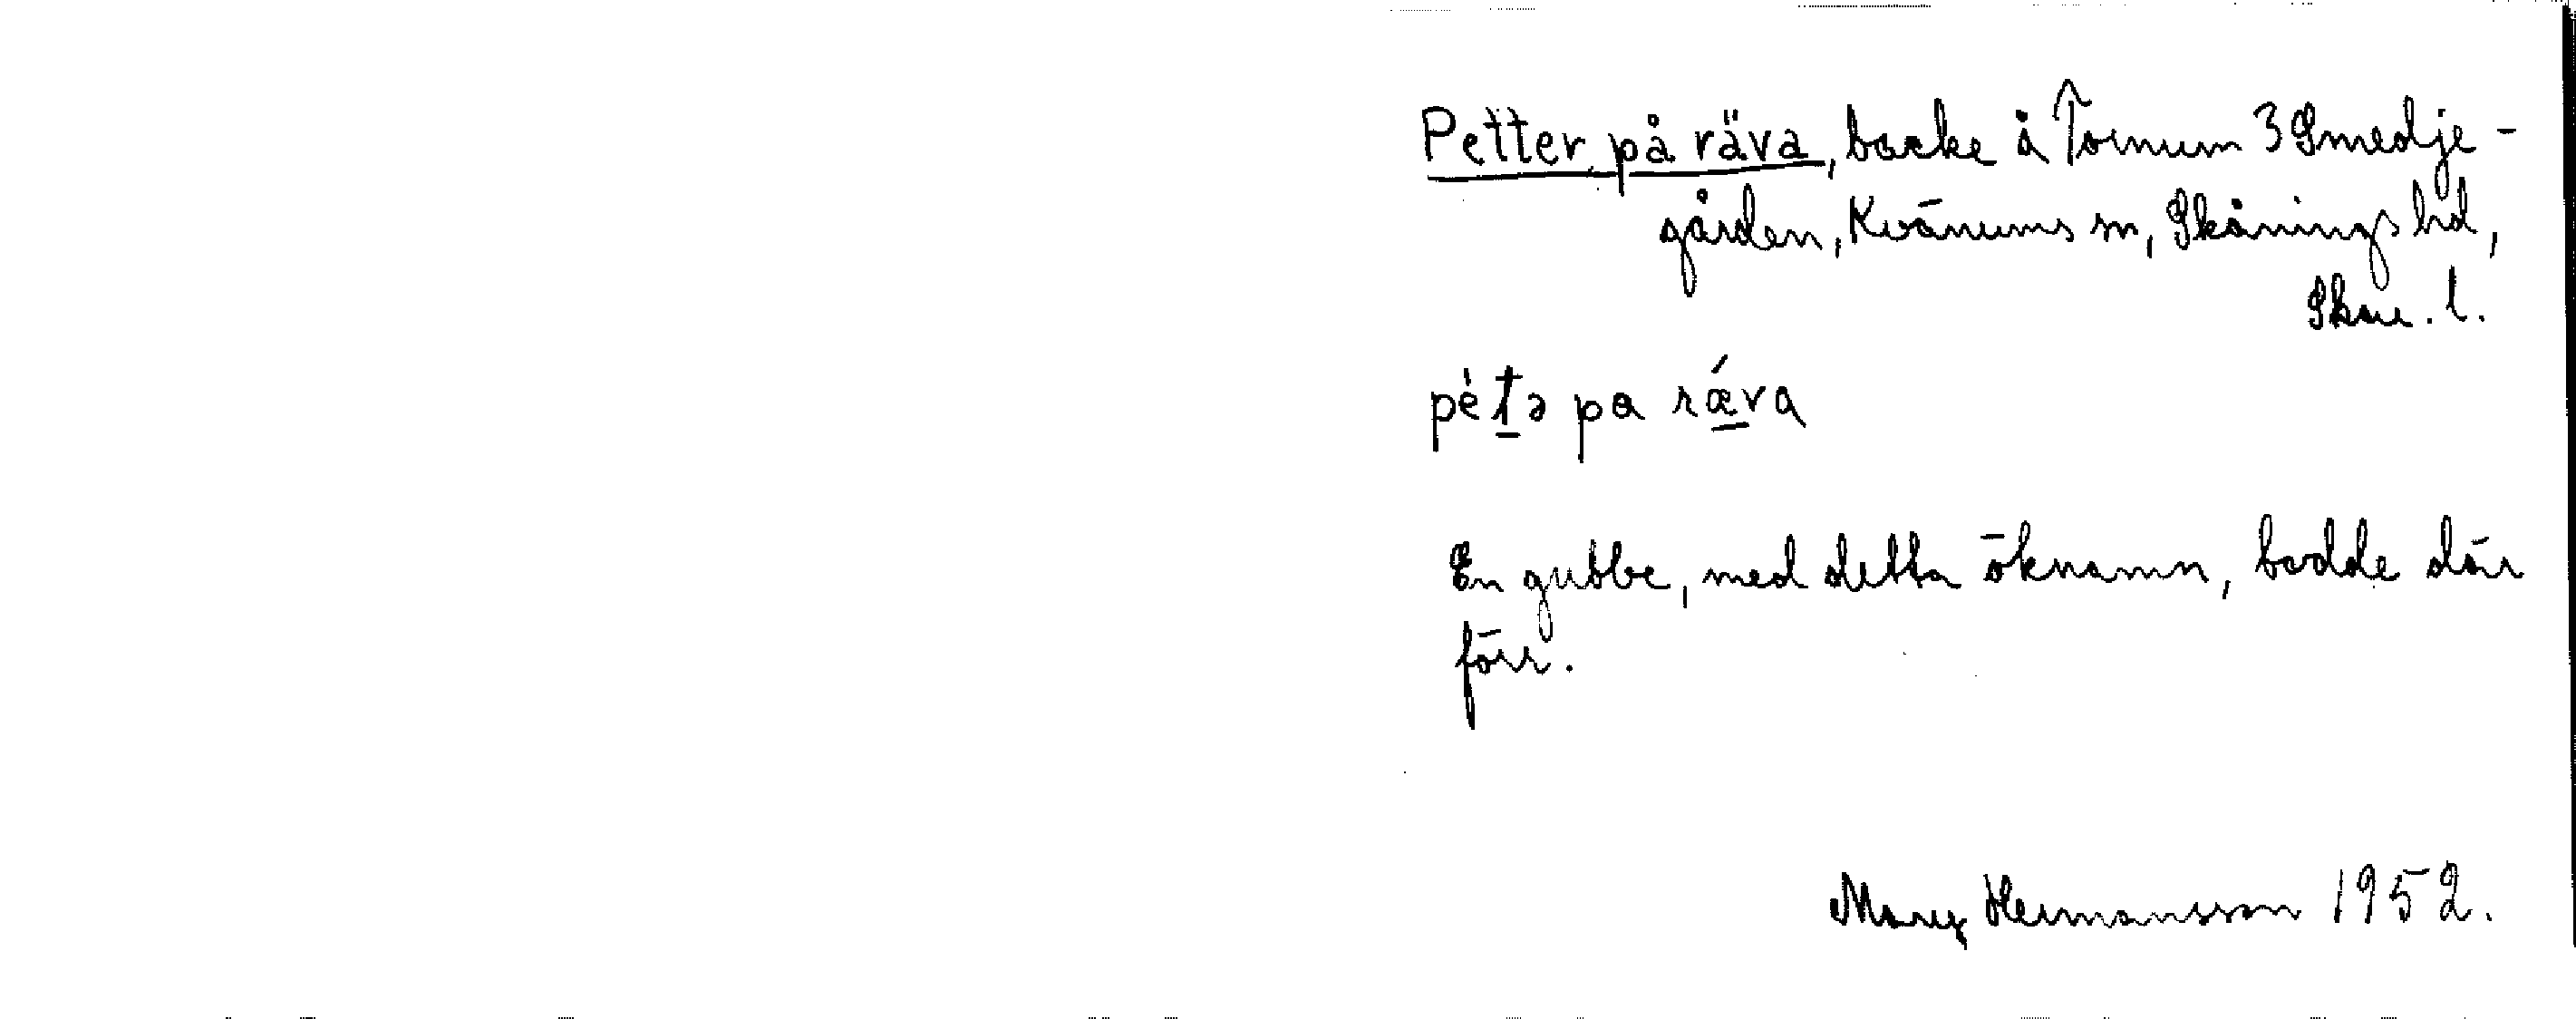 Petter på räva, backe å Tornum 3 Smedje-
gården, Kvänums sn, Skånings hd,
Skar. l.
pètə pa rǽva
En gubbe, med detta öknamn, bodde där
förr.
Mary Hermansson 1952.